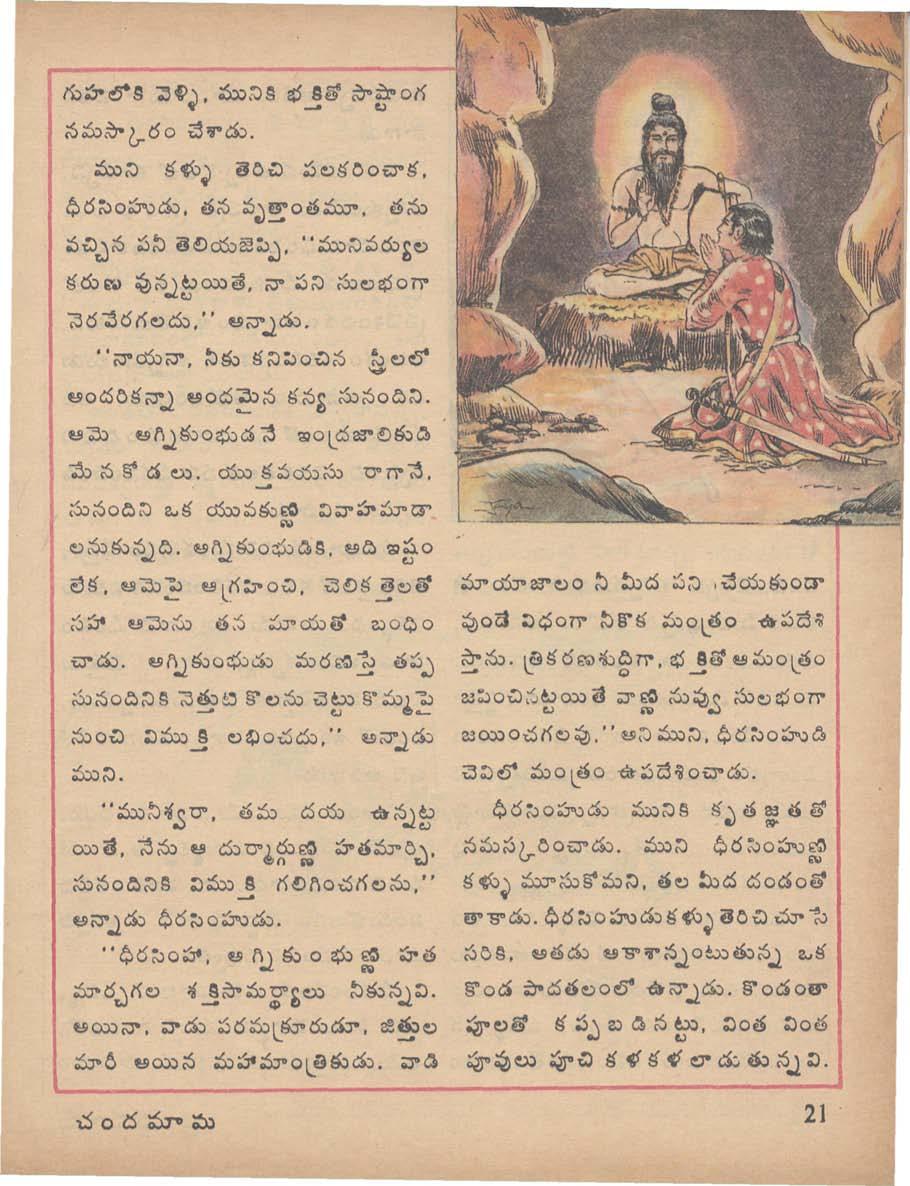 గుహలోకి వెళ్ళి, మునికి భక్తితో సాష్టాంగ
నమస్కారం చేశాడు.
ముని కళ్ళు తెరిచి పలకరించాక,
ధీరసింహుడు, తన వృత్తాంతమూ, తను
వచ్చిన పనీ తెలియజెప్పి, ‘‘మునివర్యుల
కరుణ వున్నట్టయితే, నా పని సులభంగా
నెరవేరగలదు,’’ అన్నాడు.
‘‘నాయనా, నీకు కనిపించిన స్త్రీలలో
అందరికన్నా అందమైన కన్య సునందిని.
ఆమె అగ్నికుంభుడనే ఇంద్రజాలికుడి
మేనకోడలు. యుక్తవయసు రాగానే,
సునందిని ఒక యువకుణ్ణి వివాహమాడా
లనుకున్నది. అగ్నికుంభుడికి, అది ఇష్టం
లేక, ఆమెపై ఆగ్రహించి, చెలికత్తెలతో
సహా ఆమెను తన మాయతో బంధిం
చాడు. అగ్నికుంభుడు మరణిస్తే తప్ప
సునందినికి నెత్తుటి కొలను చెట్టుకొమ్మపై
నుంచి విముక్తి లభించదు,’’ అన్నాడు
ముని.
‘‘మునీశ్వరా, తమ దయ ఉన్నట్ట
యితే, నేను ఆ దుర్మార్గుణ్ణి హతమార్చి,
సునందినికి విముక్తి గలిగించగలను,’’
అన్నాడు ధీరసింహుడు.
‘‘ధీరసింహా, అగ్నికుంభుణ్ణి హత
మార్చగల శక్తిసామర్థ్యాలు నీకున్నవి.
అయినా, వాడు పరమక్రూరుడూ, జిత్తుల
మారీ అయిన మహామాంత్రికుడు. వాడి
మాయాజాలం నీ మీద పని చేయకుండా
వుండే విధంగా నీకొక మంత్రం ఉపదేశి
స్తాను. త్రికరణశుద్ధిగా, భక్తితో ఆ మంత్రం
జపించినట్టయితే వాణ్ణి నువ్వు సులభంగా
జయించగలవు,’’ అని ముని, ధీరసింహుడి
చెవిలో మంత్రం ఉపదేశించాడు.
ధీరసింహుడు మునికి కృతజ్ఞతతో
నమస్కరించాడు. ముని ధీరసింహుణ్ణి
కళ్ళు మూసుకోమని, తల మీద దండంతో
తాకాడు. ధీరసింహుడు కళ్ళు తెరిచి చూసే
సరికి, అతడు ఆకాశాన్నంటుతున్న ఒక
కొండ పాదతలంలో ఉన్నాడు. కొండంతా
పూలతో కప్పబడినట్టు, వింత వింత
పూవులు పూచి కళకళలాడుతున్నవి.
చందమామ
21